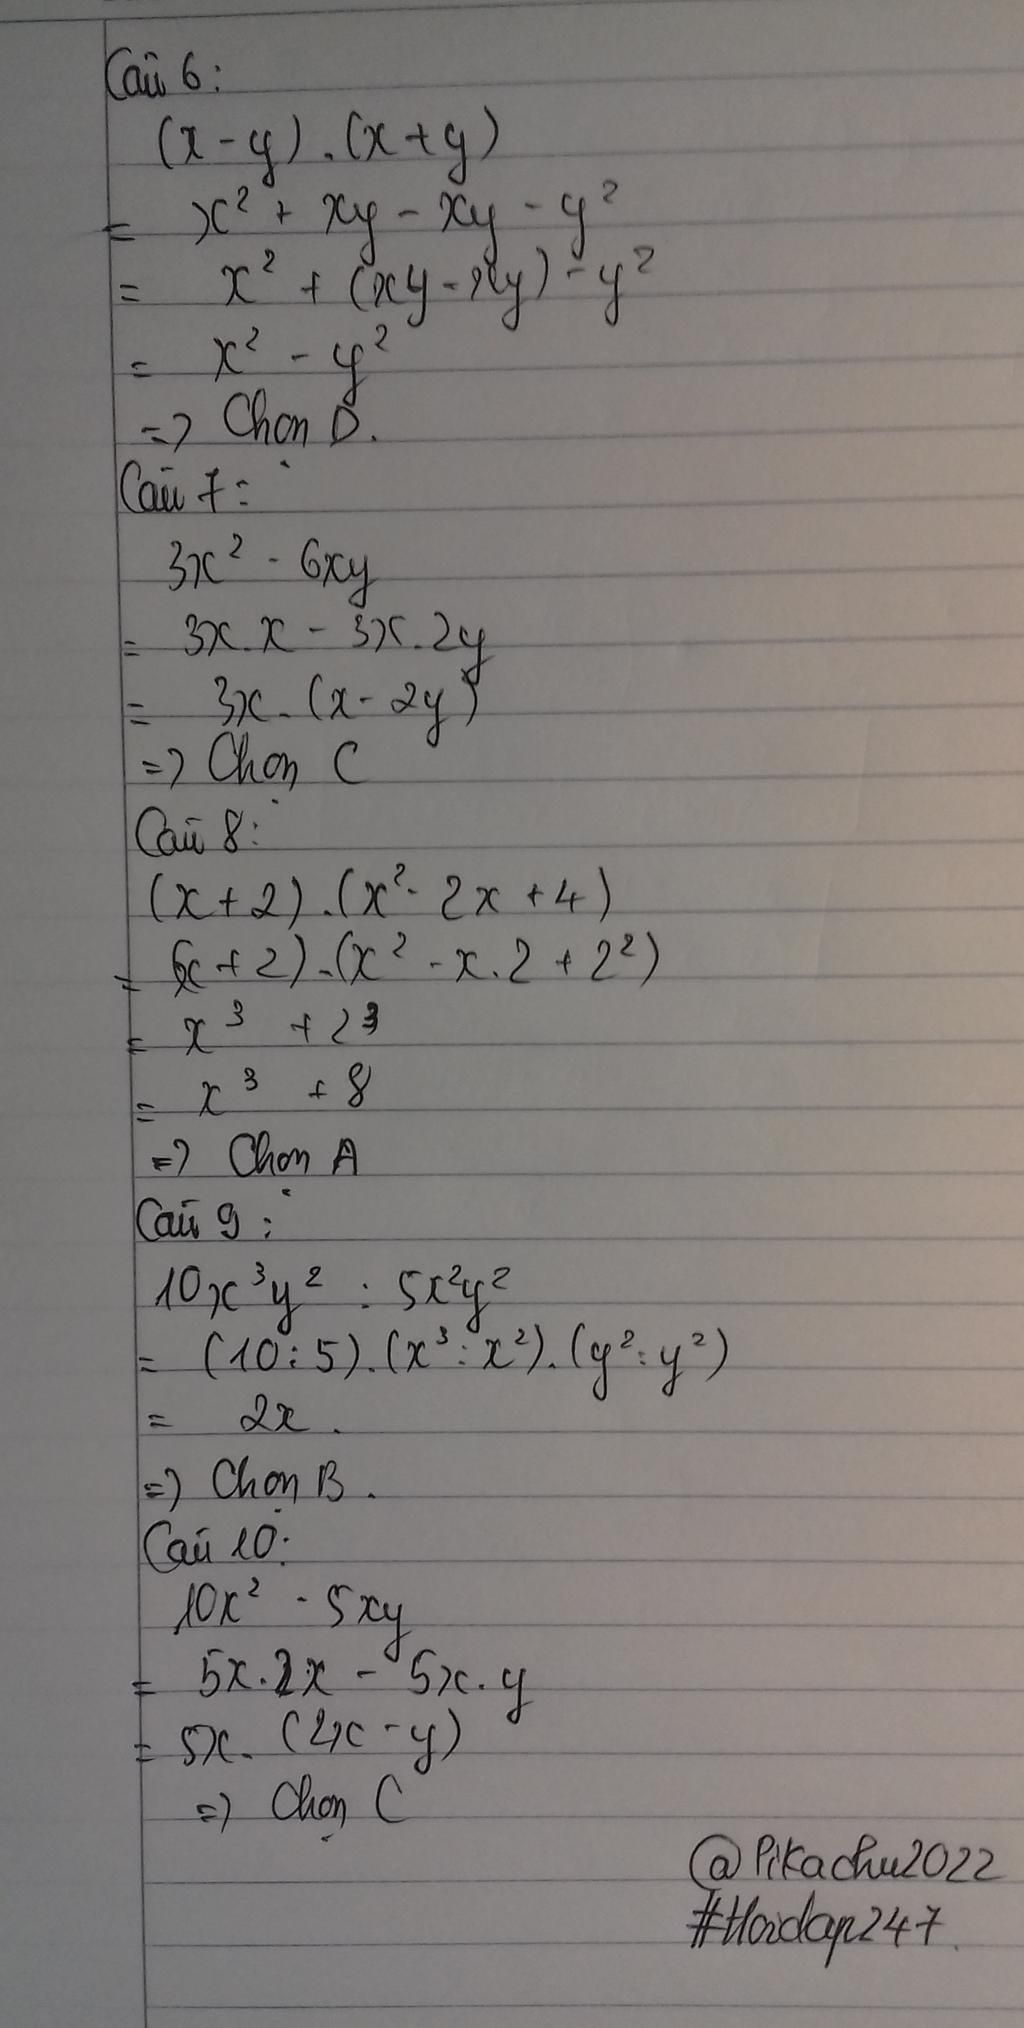 Câu 6:
(x - y) . (x + y)
= x² + xy - xy - y²
= x² + (xy - xy) - y²
= x² - y²
=> Chọn D.
Câu 7:
3x² - 6xy
= 3x.x - 3x.2y
= 3x.(x - 2y)
=> Chọn C
Câu 8:
(x + 2).(x² - 2x + 4)
= (x + 2).(x² - x.2 + 2²)
= x³ + 2³
= x³ + 8
=> Chọn A
Câu 9:
10x³y² : 5x²y²
= (10:5).(x³:x²).(y²:y²)
= 2x.
=> Chọn B.
Câu 10:
10x² - 5xy
= 5x.2x - 5x.y
= 5x.(2x - y)
=> Chọn C
@Pikachu2022
#Hoidap247.